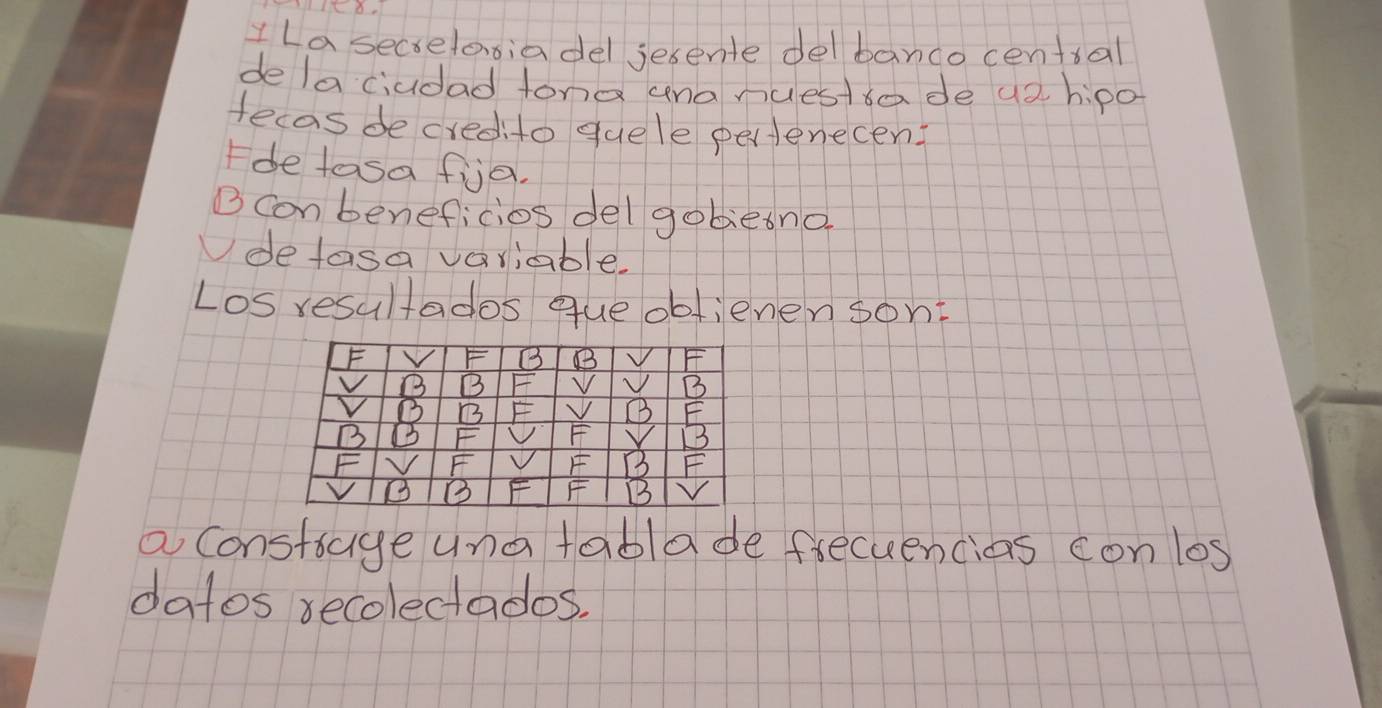 1 La secretaria del jerente del banco central
de la ciudad toma una muestra de 42 hipo
tecas de credito que le pertenecen:
F de tasa fija.
B con beneficios del gobierno.
V de tasa variable.
Los resultados que obtienen son:
F V F B B V F
V B B F V V B
V B B F V B F
B B F V F V B
F V F V F B F
V B B F F B V
a construye una tabla de frecuencias con los
datos recolectados.